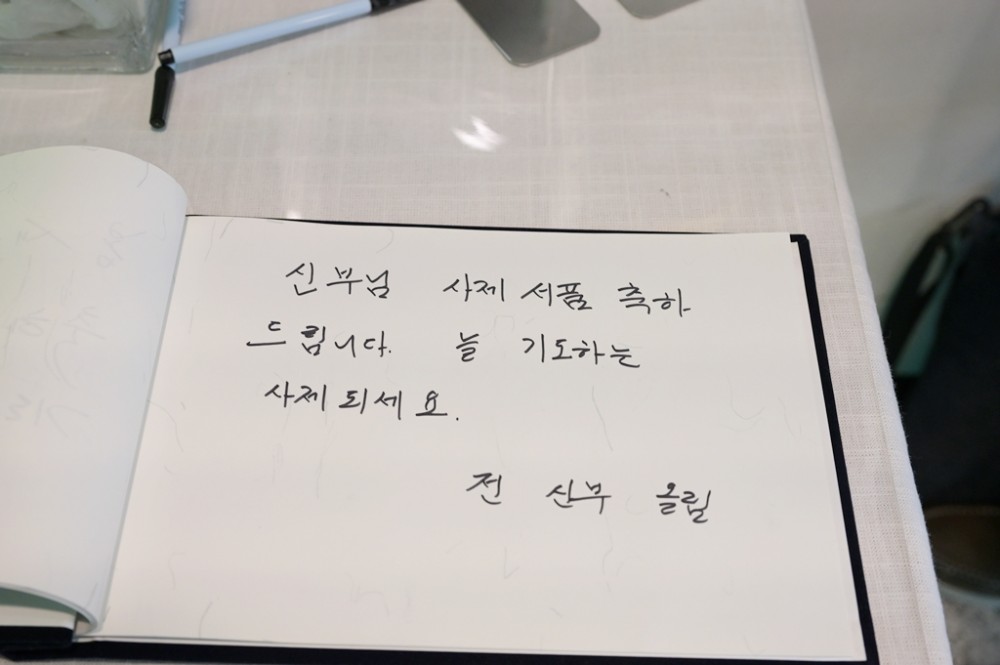 신부님 사제 서품 축하
드립니다. 늘 기도하는
사제 되세요.
전 신부 올림